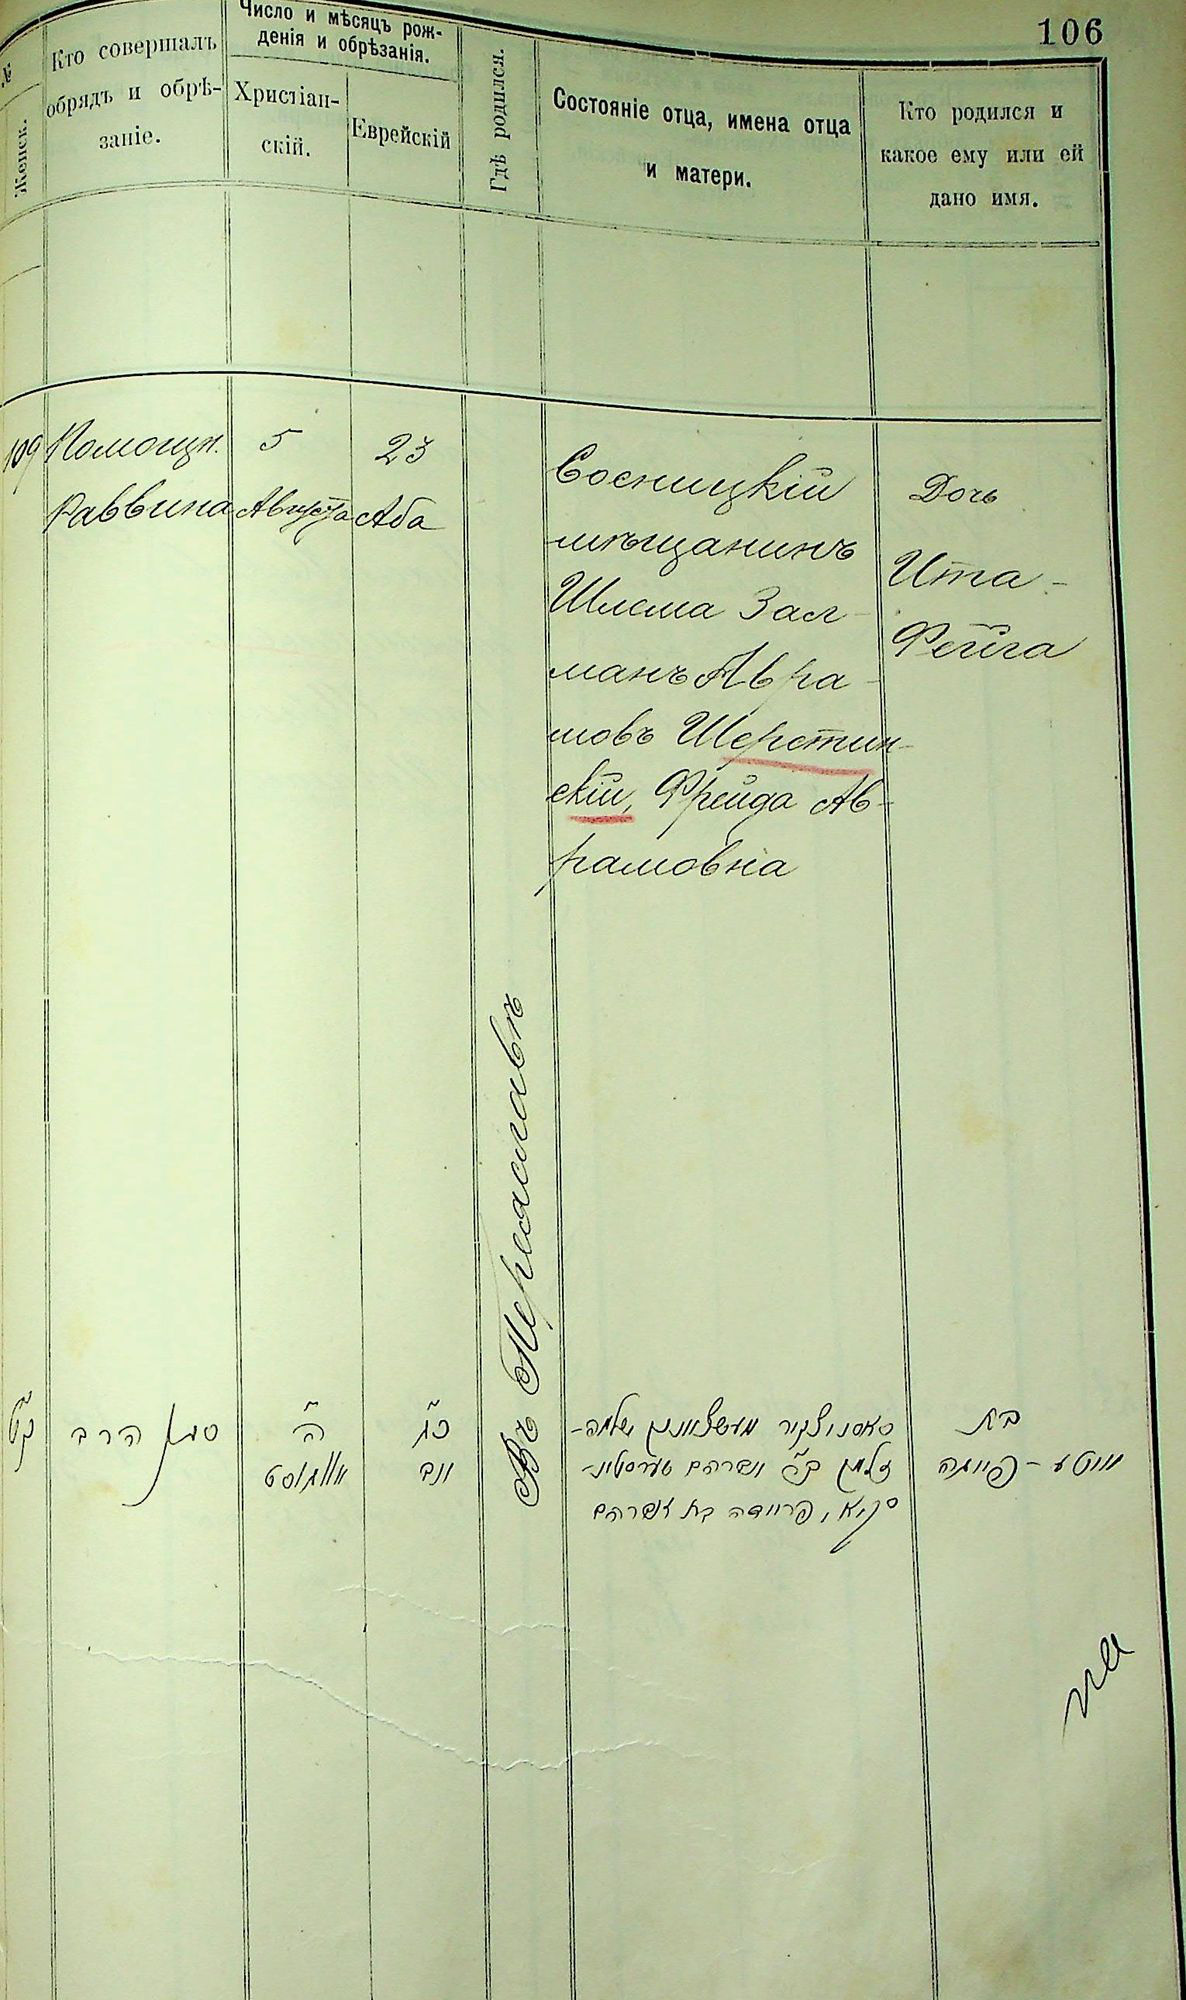 106
№
Женск.
Кто совершалъ
обрядъ и обрѣ-
заніе.
Число и мѣсяцъ рож-
денія и обрѣзанія.
Христіан-
скій.
Еврейскій
Гдѣ родился.
Состояніе отца, имена отца
и матери.
Кто родился и
какое ему или ей
дано имя.
109
Помощн.
Раввина
5
Августа
23
Аба
Въ Переяславѣ
Сосницкій
мѣщанинъ
Шлема Зал-
манъ Авра-
мовъ Шерстин-
скій, Фрейда Ав-
рамовна
Дочь
Ита-
Фейга
ק״ט
סגן הרב
ה״
אויגוסט
כ״ג
אב
סאסניצקיר מעשצאנין שלמה-
זלמן ב״ר אברהם שערסטינ-
סקיא, פריידה בת אברהם
בת
איטע-פייגה